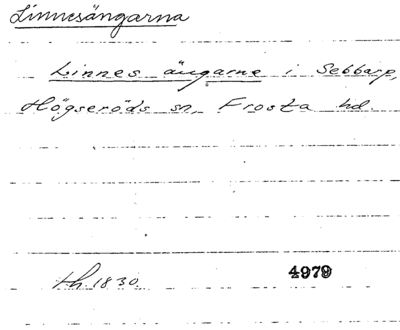 Linnesängarna
Linnes ängarne i Sebbarp,
Högseröds sn, Frosta hd.
th. 1830. 4979